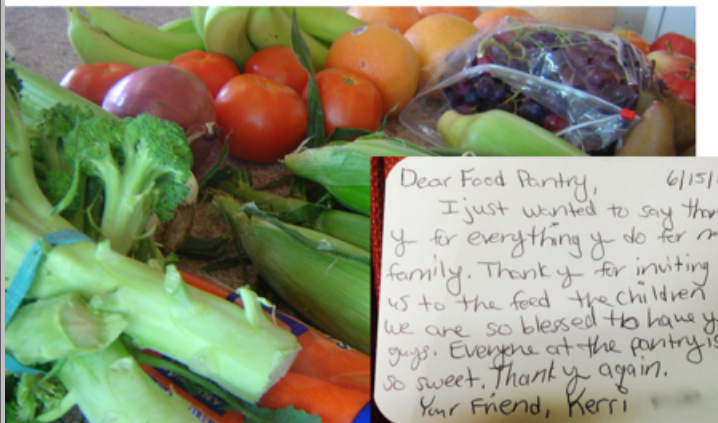 Dear Food Pantry, 6/15/
I just wanted to say
y for everything y do for
family. Thank y for inviting
us to the feed the children
we are so blessed to have y
guys. Everyone at the pantry is
so sweet. Thank y again.
Your Friend, Kerri